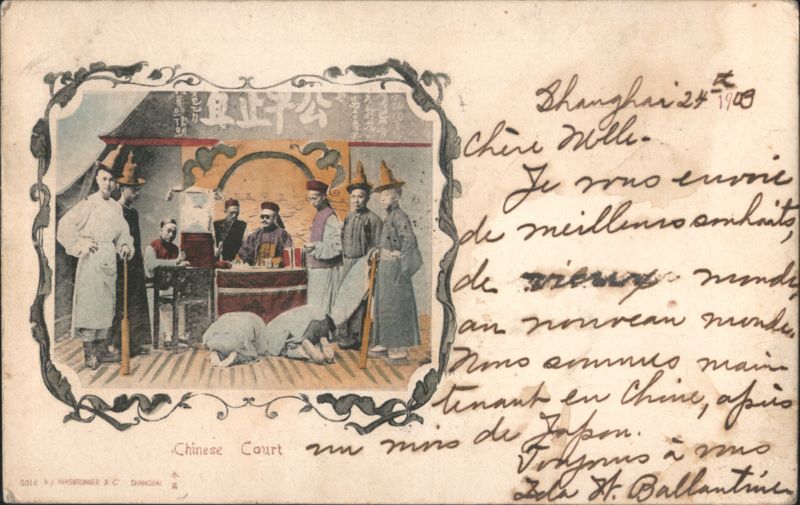 公平正直
Chinese Court
Sold by HIRSBRUNNER & Co SHANGHAI
Shanghai 24 1903
Chère Mlle-
Je vous envoie
de meilleurs souhaits,
de vieux monde,
au nouveau monde.
Nous sommes main-
tenant en Chine, après
un mois de Japon.
Toujours à vous
Ida H. Ballantine